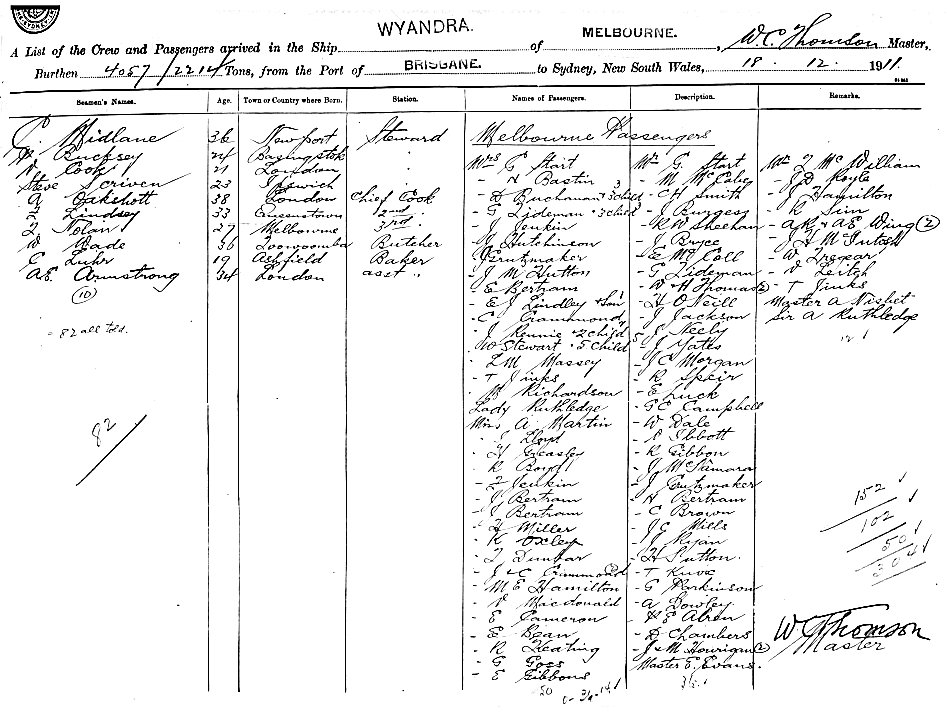 WYANDRA.
MELBOURNE.
A List of the Crew and Passengers arrived in the Ship of , W. C. Thomson Master,
BRISBANE.
Burthen 4057/2214 Tons, from the Port of to Sydney, New South Wales, 18. 12. 1911.
Seamen's Names. Age. Town or Country where Born. Station. Names of Passengers. Description. Remarks.
Midlane 36 Newport Steward
Melbourne Passengers
Bucksey 24 Basingstok
Cook 21 London
Steve Scriven 23 Ipswich
A Oakshott 38 London Chief Cook
F Lindsey 33 Queenstown 2nd
Nolan 27 Melbourne 3rd
W Wade 36 Toowoomba Butcher
E Luhr 19 Ashfield Baker
A.E. Armstrong 34 London asst
(10)
- 82 all told.
82
Mrs G Start
- N Bastin
- D Buchanan 3 child
- G Lideman 3 child
- J Jenkin
- Hutchinson
Grutzmaker
- J M Hutton
- E Bertram
- E J Lindley & Son
- C Crammond
- J Rennie 2 child
- W Stewart 5 child
- L M Massey
- T Jinks
- Richardson
Lady Ruthledge
Miss A Martin
- J Lloyd
- H Greasley
- R Boyd
- F Jenkin
- J Bertram
- J Bertram
- H Miller
- K Oxley
- F Dunbar
- J & C Crimmond
- M E Hamilton
- Macdonald
- E Cameron
- E Bean
- R Keating
- G Goss
- E Gibbons
50
Mr G Start
- M McCabey
- C H Smith
- J Burgess
- R W Sheehan
- J Bryce
- E McColl
- G Lideman
- W H Thomas 2
- H O'Neill
- J Jackson
- J Neely
- J Yates
- J C Morgan
- R Speir
- E Luck
- G C Campbell
- W Dale
- Ibbott
- R Gibbon
- J McNamara
- J Grutzmaker
- H Bertram
- C Brown
- J G Mills
- J Ryan
- H Sutton.
- T Kuve
- G Parkinson
- A Dowley
- E Alren
- D Chambers
- J & M Hourigan (2)
Master E. Evans
Mr McWilliam
- J D Royle
- J Hamilton
- R Sim
- A R & A E Wing (2)
- J H McIntosh
- W Tregear
- V Leitch
- T Jinks
Master A Nisbet
Sir A Ruthledge
152
102
50
304
W C Thomson
Master